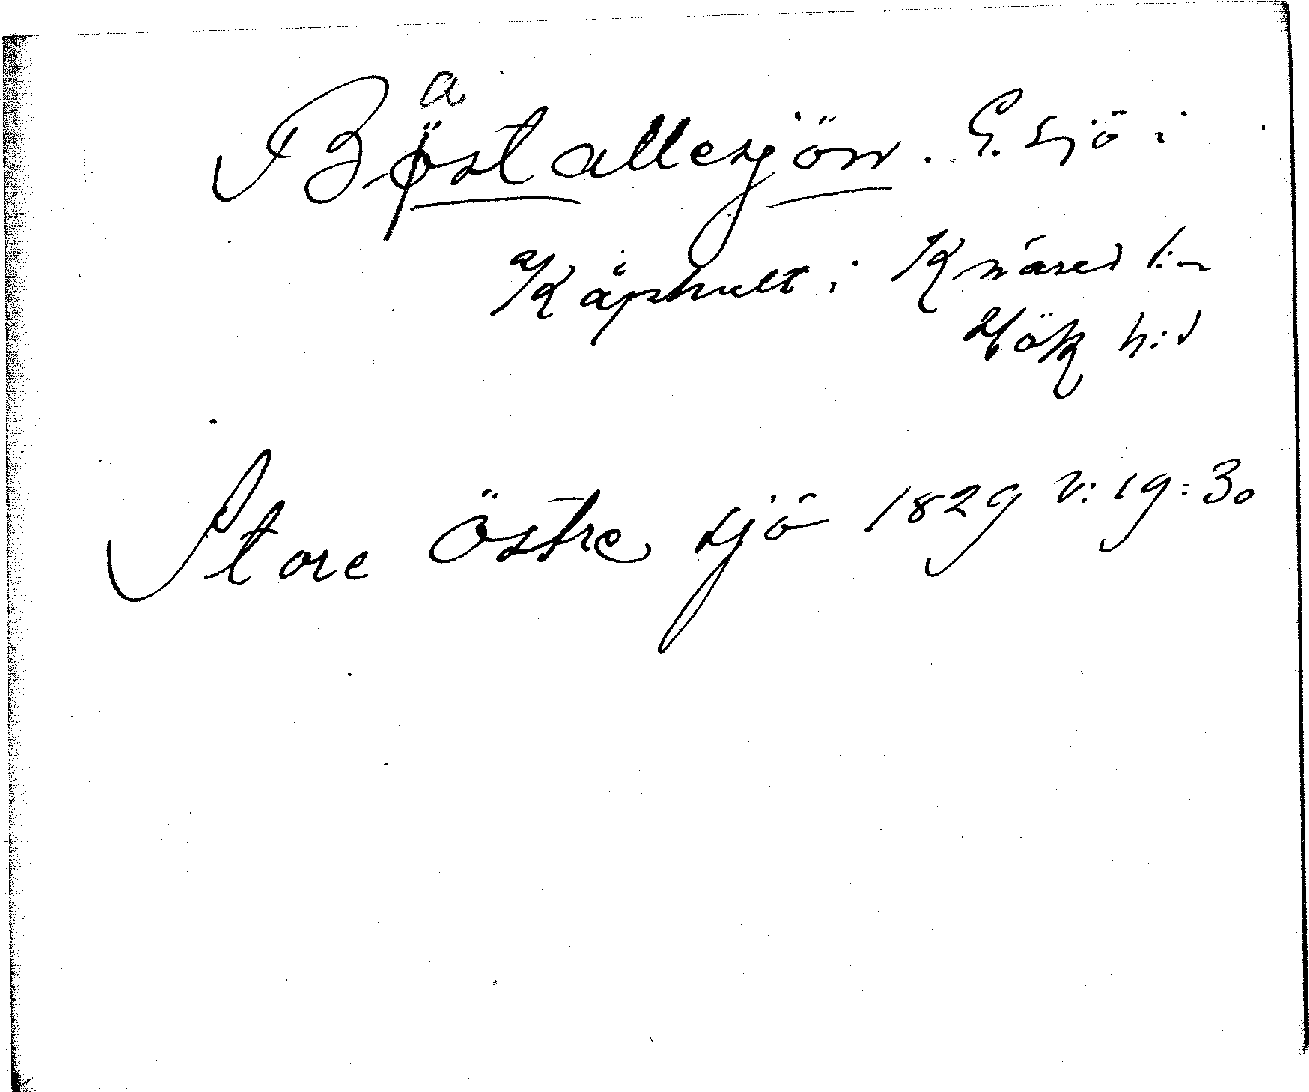 Bastallesjön. E. sjö i
a/Kåphult i Knäred s:n
Hök h:d
Store Östre sjö 1829 v: 19: 30